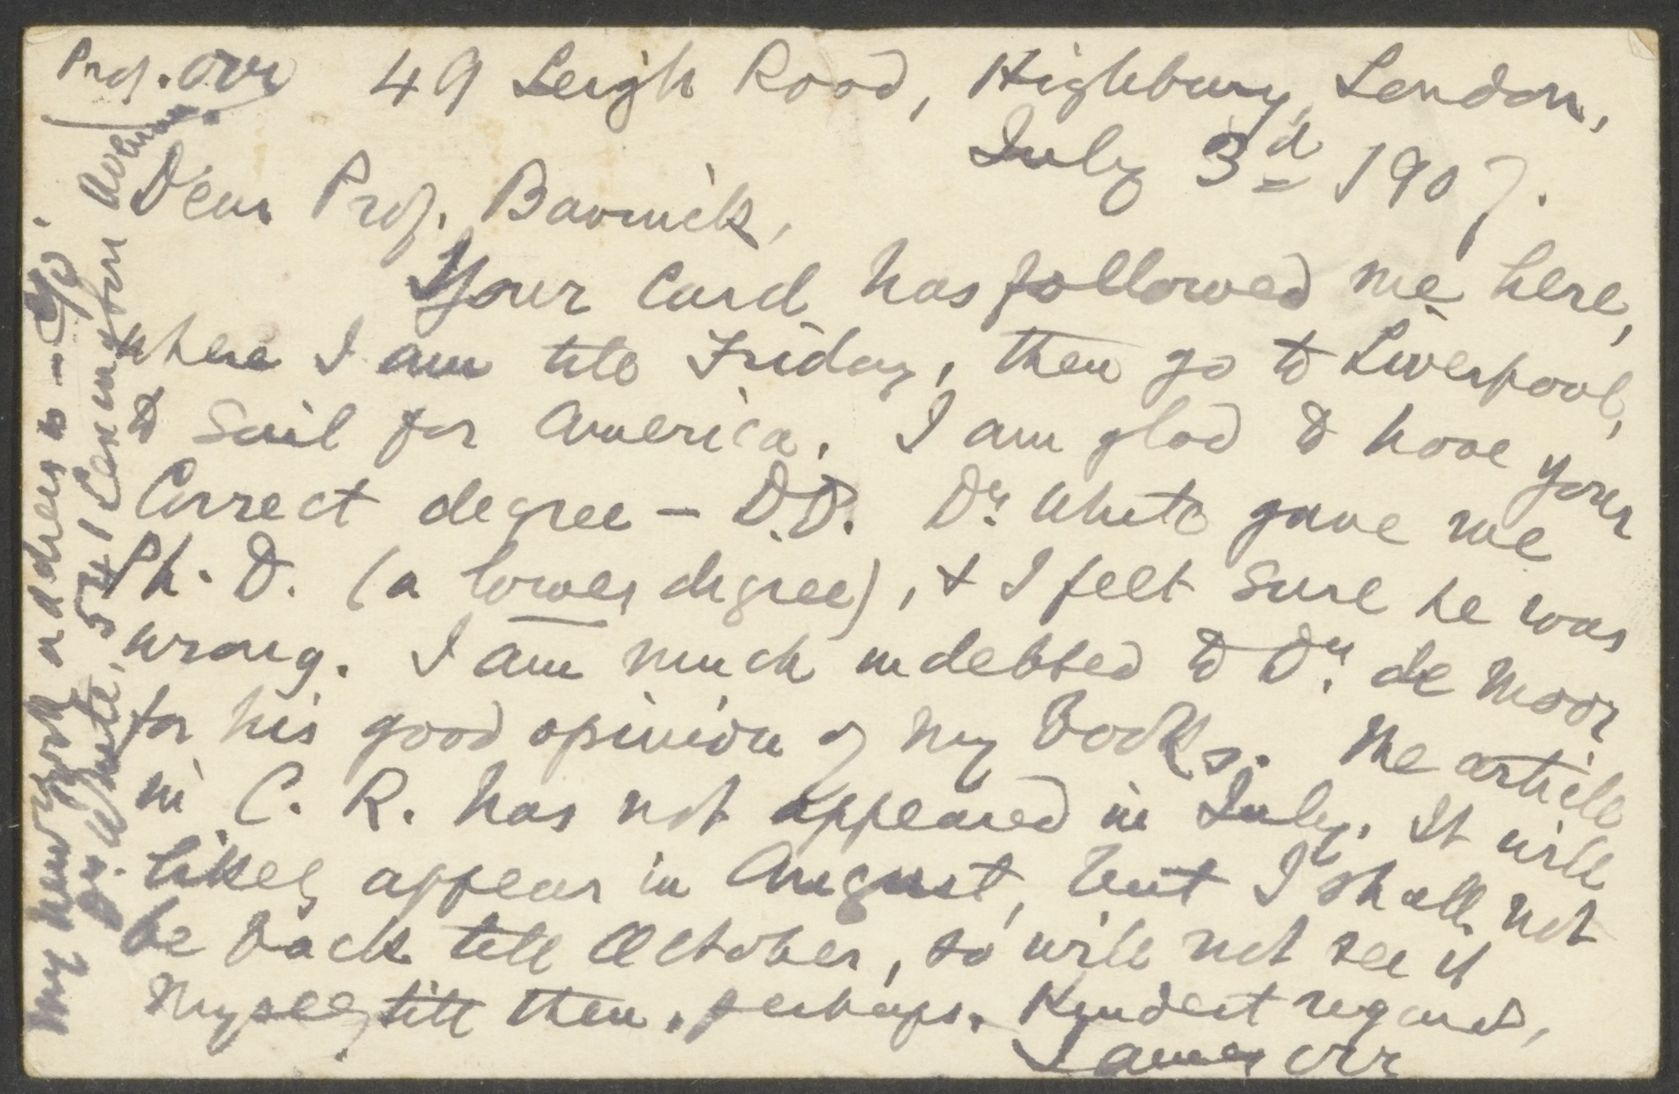 Prof. Orr 49 Leigh Road, Highbury, London,
July 3d 1907.
Dear Prof. Bavinck,
Your Card has followed me here,
where I am till Friday, then go to Liverpool,
to sail for America. I am glad to have your
Correct degree – D.D. Dr. White gave me
Ph. D. (a lower degree), & I felt sure he was
wrong. I am much indebted to Dr. de Moor
for his good opinion of my Books. The article
in C. R. has not appeared in July. It will
likely appear in August, but I shall not
be back till October, so will not see it
myself till then, perhaps. Kindest regards,
James Orr
My New York address is – C/o
Dr. White, 541 Lexington Avenue.